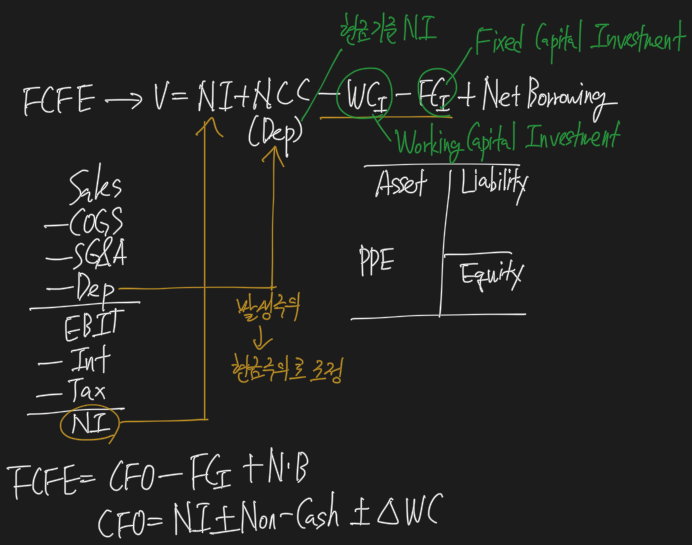 현금기준 NI
Fixed Capital Investment
FCFE → V = NI + NCC - WC_I - FC_I + Net Borrowing
(Dep)
Working Capital Investment
Sales
- COGS
- SG&A
- Dep
EBIT
- Int
- Tax
NI
발생주의
↓
현금주의로 조정
Asset
Liability
PPE
Equity
FCFE = CFO - FC_I + N·B
CFO = NI ± Non-Cash ± △WC